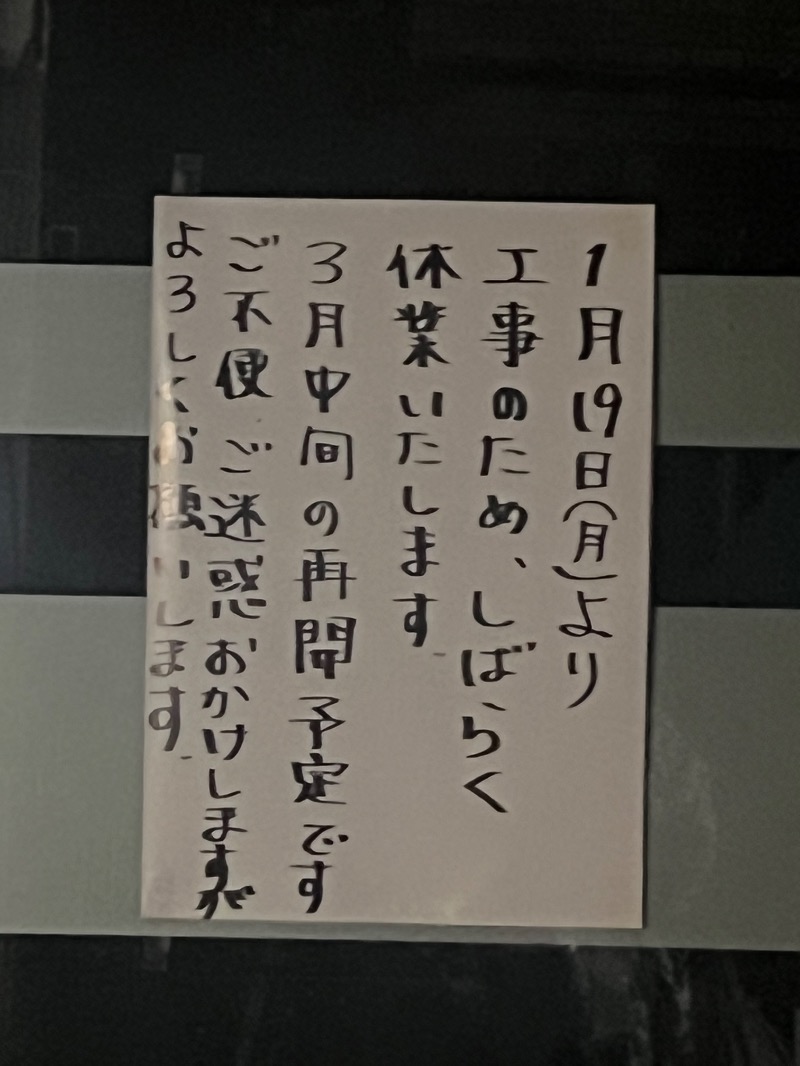 1月19日(月)より
工事のため、しばらく
休業いたします
3月中旬の再開予定です
ご不便 ご迷惑おかけしますが
よろしくお願いします